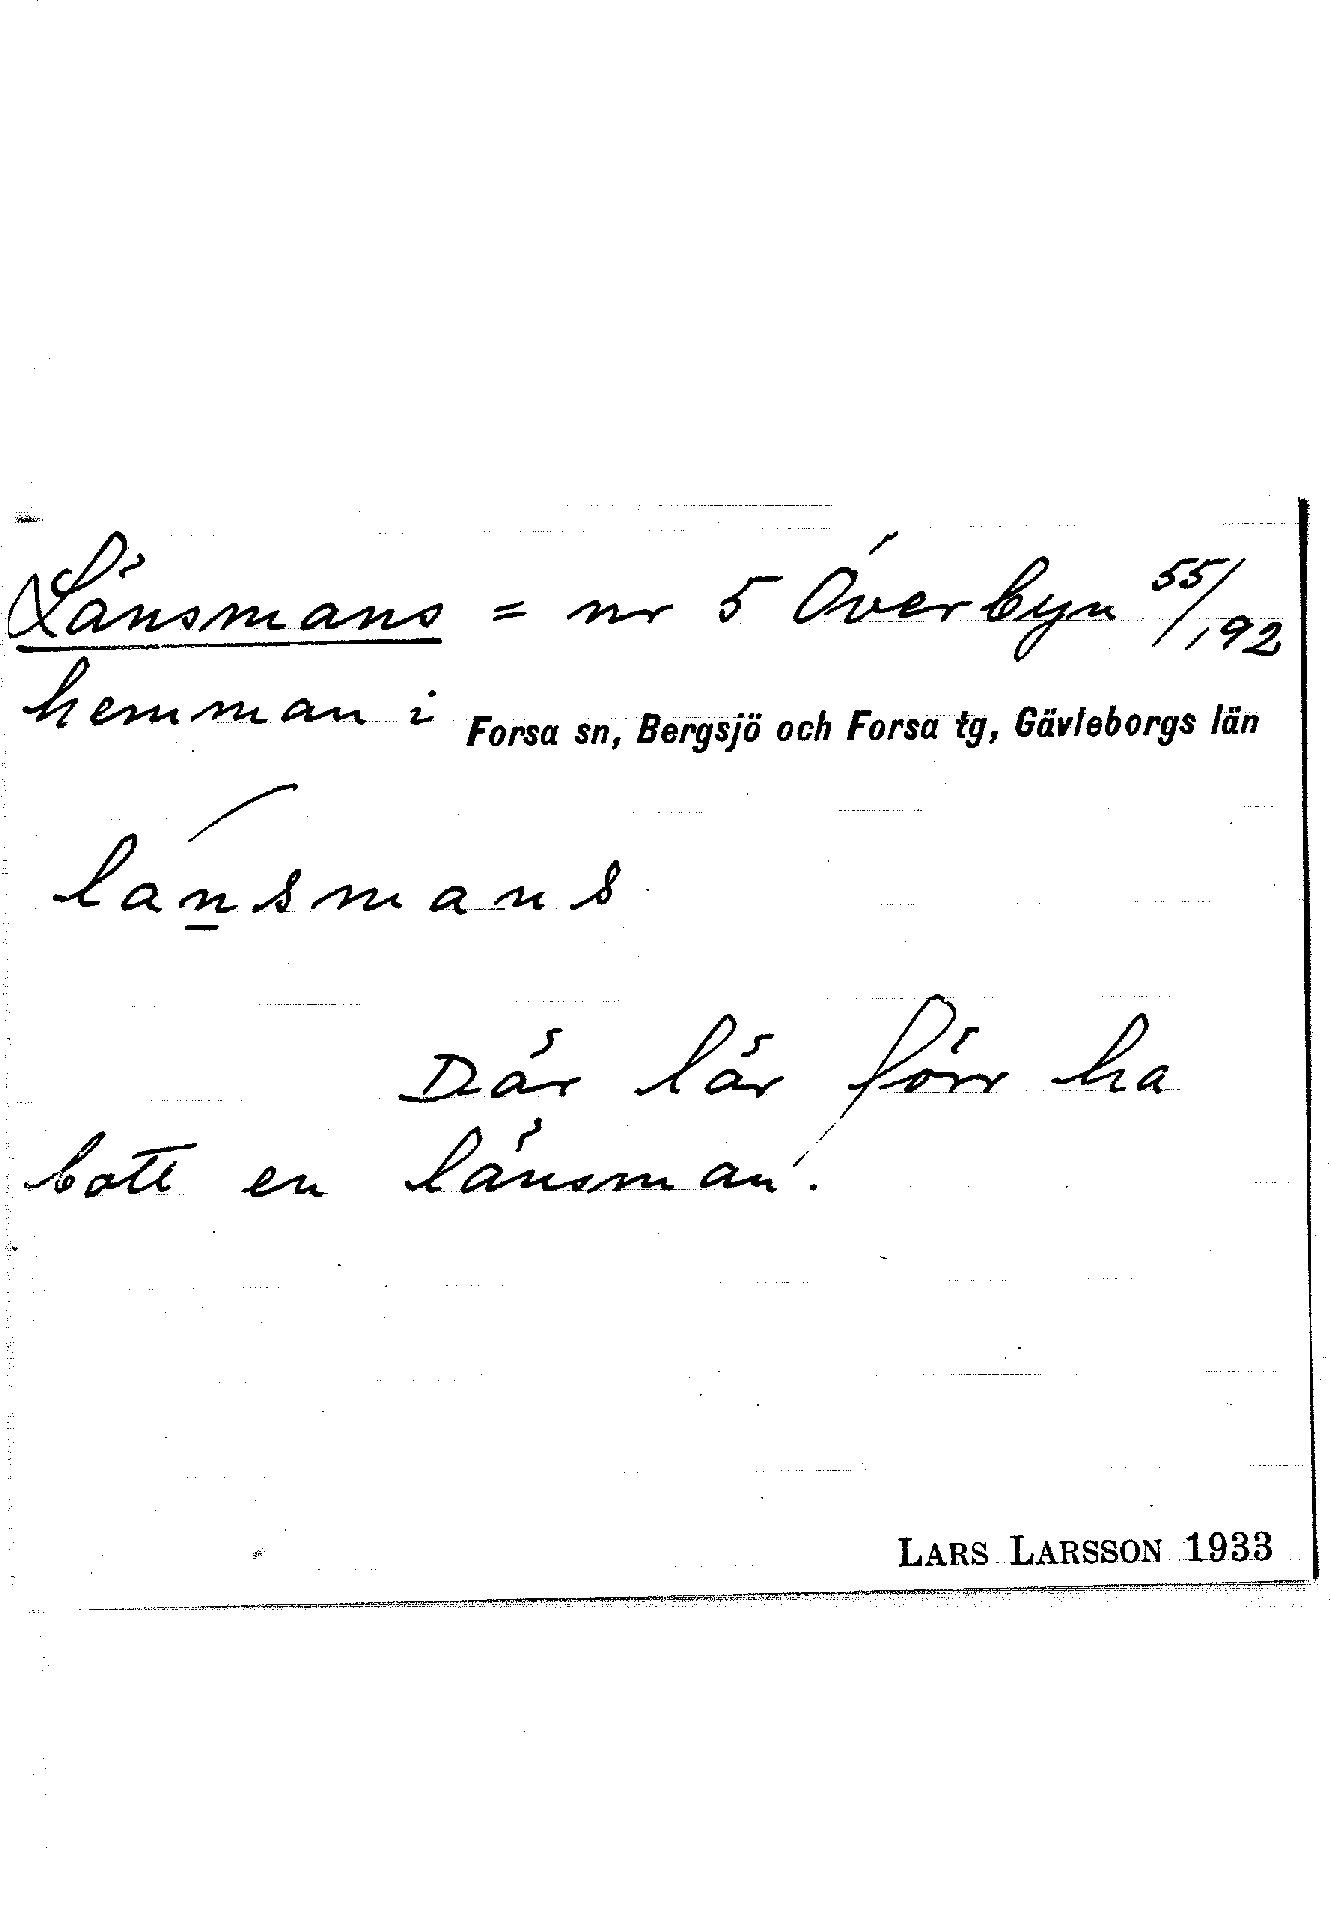 Länsmans = nr 5 Överbyn 55/192
hemman i Forsa sn, Bergsjö och Forsa tg, Gävleborgs län
lánsmans
Där lär förr ha
bott en länsman.
LARS LARSSON 1933